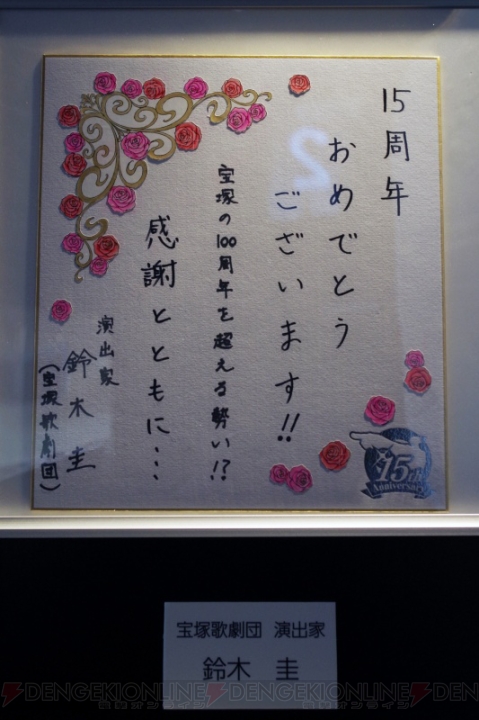 15周年
おめでとう
ございます!!
宝塚の100周年を超える勢い!?
感謝とともに…
演出家
鈴木圭
(宝塚歌劇団)
15th
Anniversary
宝塚歌劇団 演出家
鈴木 圭
DENGEKIONLINE DENGEKIONLINE DENGEKI
電撃オンライン 電撃オンライン